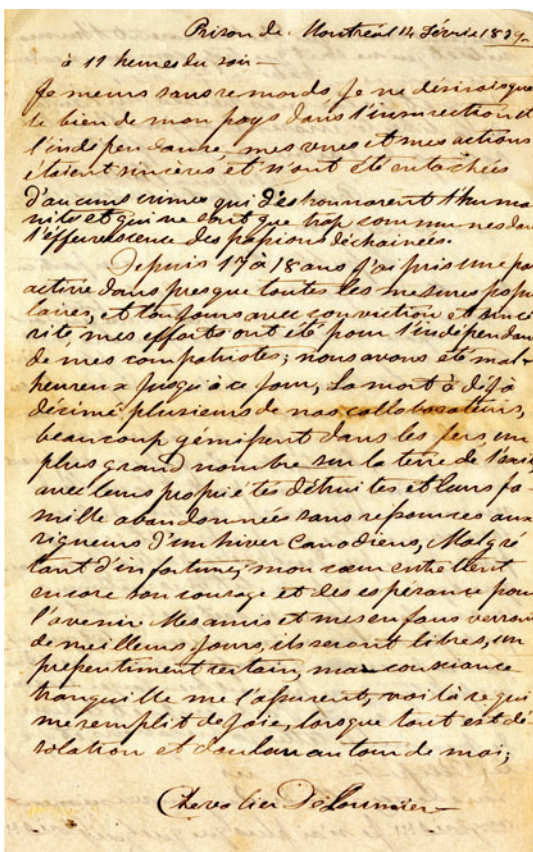 Prison de Montréal 14 Février 1839
à 11 heures du soir –
Je meurs sans remords je ne désirais que
le bien de mon pays dans l'insurrection et
l'indépendance, mes vues et mes actions
étaient sincères et n'ont été entachées
d'aucuns crimes qui déshonnorent l'huma
nité et qui ne sont que trop communes dans
l'effervescence des passions déchainées.
Depuis 17 à 18 ans j'ai pris une pa
active dans presque toutes les mesures popu
laires, et toujours avec conviction et sincé
rité, mes efforts ont été pour l'indépendan
de mes compatriotes; nous avons été mal-
heureux jusqu'à ce jour, La mort à déjà
décimé plusieurs de nos collaborateurs,
beaucoup gémissent dans les fers, un
plus grand nombre sur la terre de l'exil
avec leurs propriétés détruites et leurs fa-
mille abandonnées sans ressources aux
rigueurs d'un hiver Canadiens, Malgré
tant d'infortune, mon cœur entretient
encore son courage et des espérance pour
l'avenir Mes amis et mes enfans verront
de meilleurs jours, ils seront libres, un
pressentiment certain, ma consciance
tranquille me l'assurent, voilà ce qui
me remplit de joie, lorsque tout est dé-
solation et douleur autour de moi;
Chevalier De Lorimier